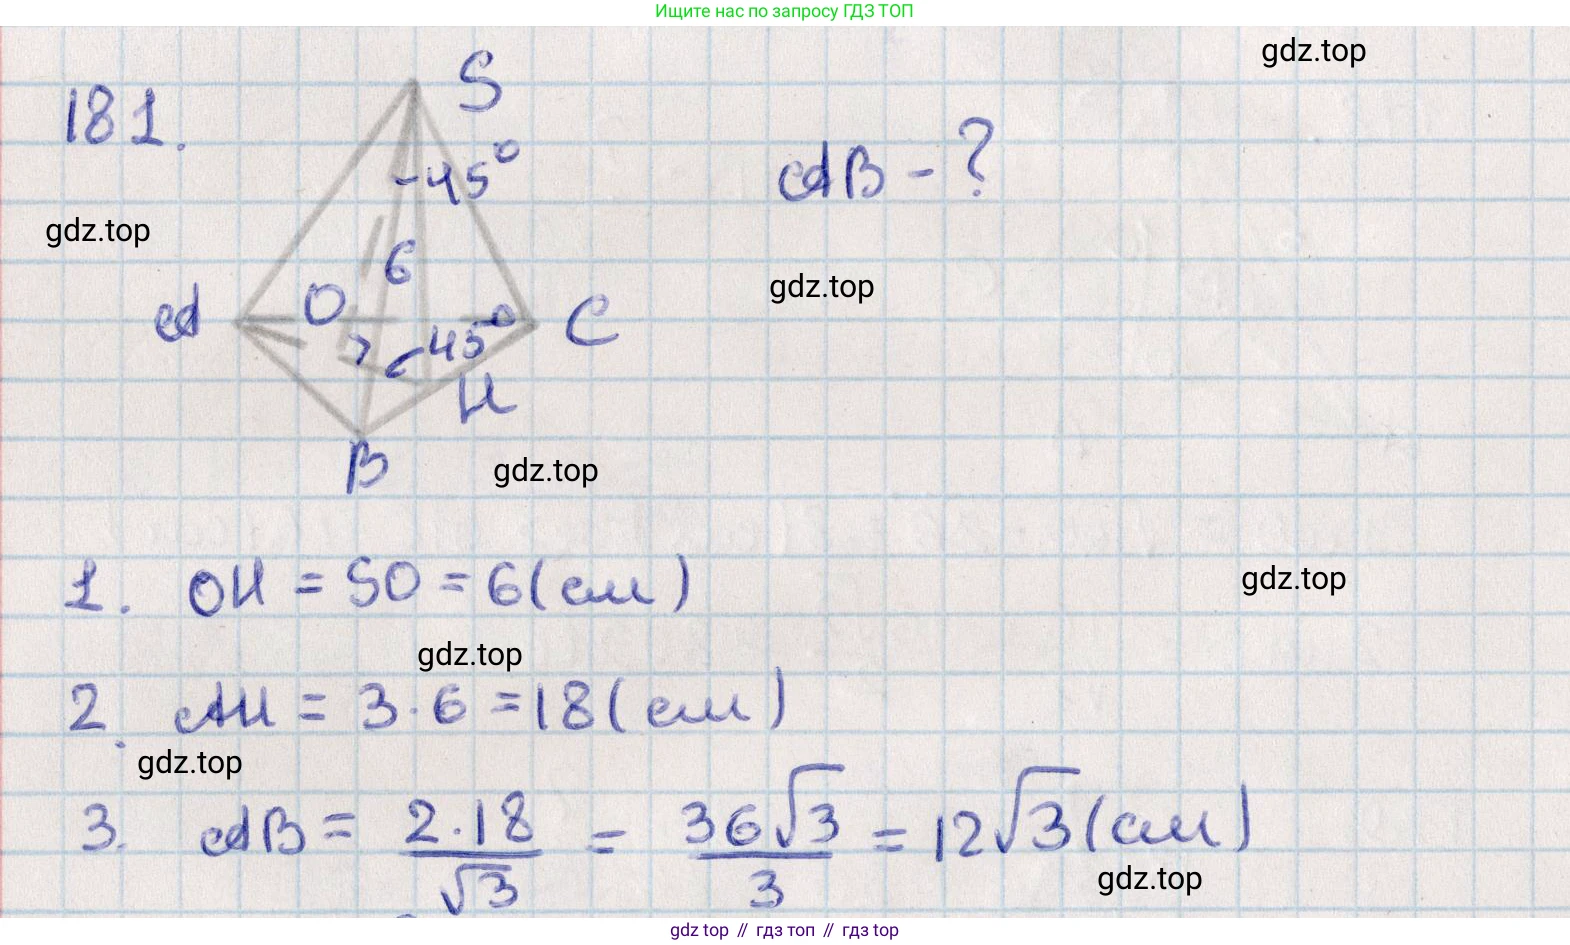 Ищите нас по запросу ГДЗ ТОП
gdz.top
181.
S
45°
AB - ?
gdz.top
6
gdz.top
A
O
45°
C
H
B
gdz.top
1. OH = SO = 6 (см)
gdz.top
gdz.top
2. AH = 3·6 = 18 (см)
gdz.top
3. AB = 2·18/√3 = 36√3/3 = 12√3 (см)
gdz.top
gdz top // гдз топ // гдз top